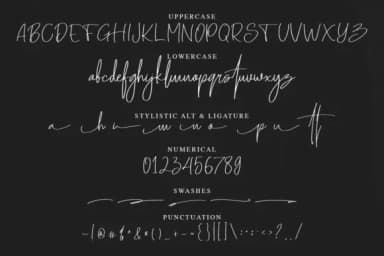 UPPERCASE
ABCDEFGHIJKLMNOPQRSTUVWXYZ
LOWERCASE
abcdefghijklmnopqrstuvwxyz
STYLISTIC ALT & LIGATURE
a h n m n o p u tt
NUMERICAL
0123456789
SWASHES
PUNCTUATION
~!@#$%^&*()_+-={}[]\:";'<>?,./